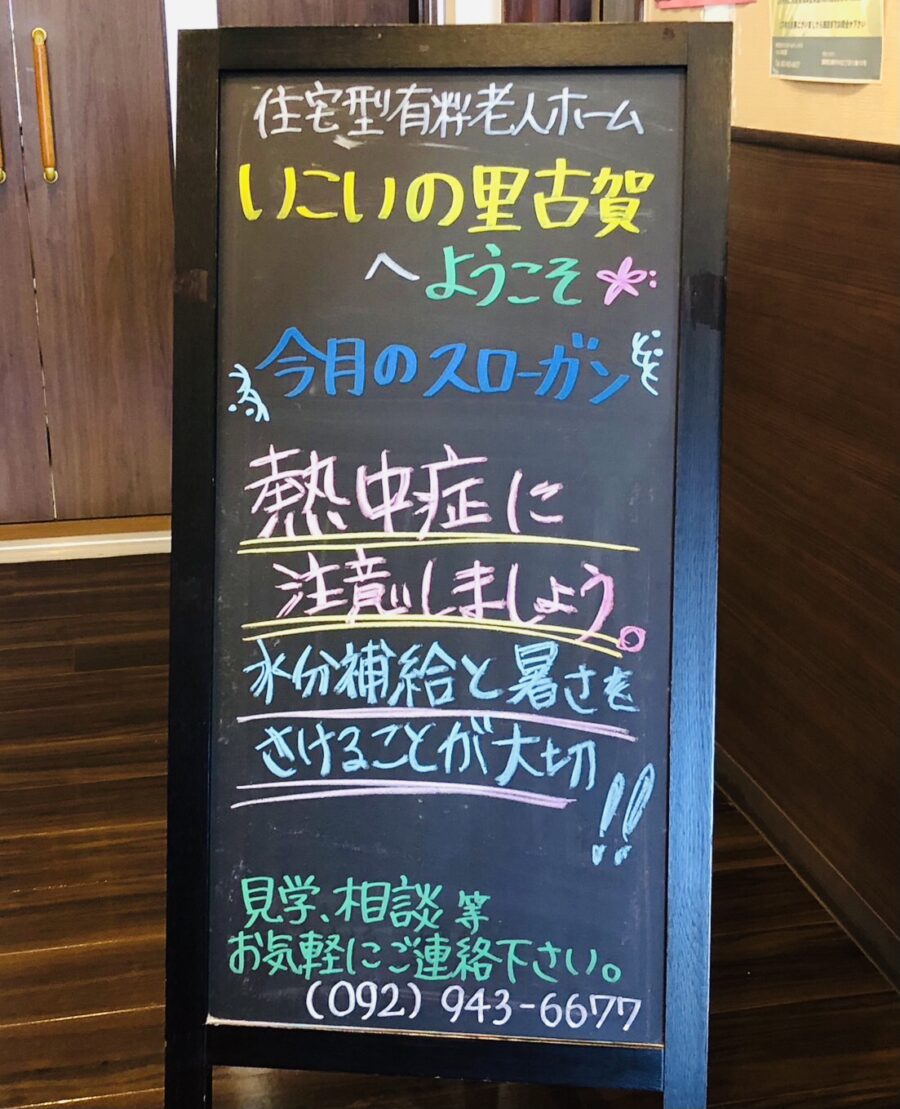 住宅型有料老人ホーム
いこいの里古賀
へようこそ
今月のスローガン
熱中症に
注意しましょう。
水分補給と暑さを
さけることが大切!!
見学、相談等
お気軽にご連絡下さい。
(092)943-6677